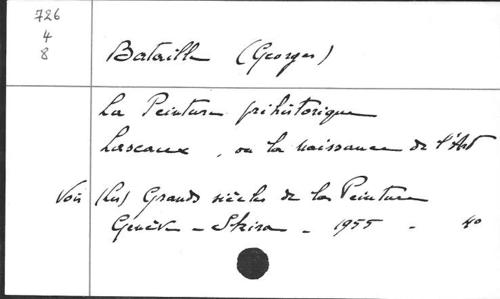 726
4
8
Bataille (Georges)
La Peinture préhistorique
Lascaux, ou la naissance de l'Art
Voir (Les) Grands siècles de la Peinture
Genève - Skira - 1955 - 4o